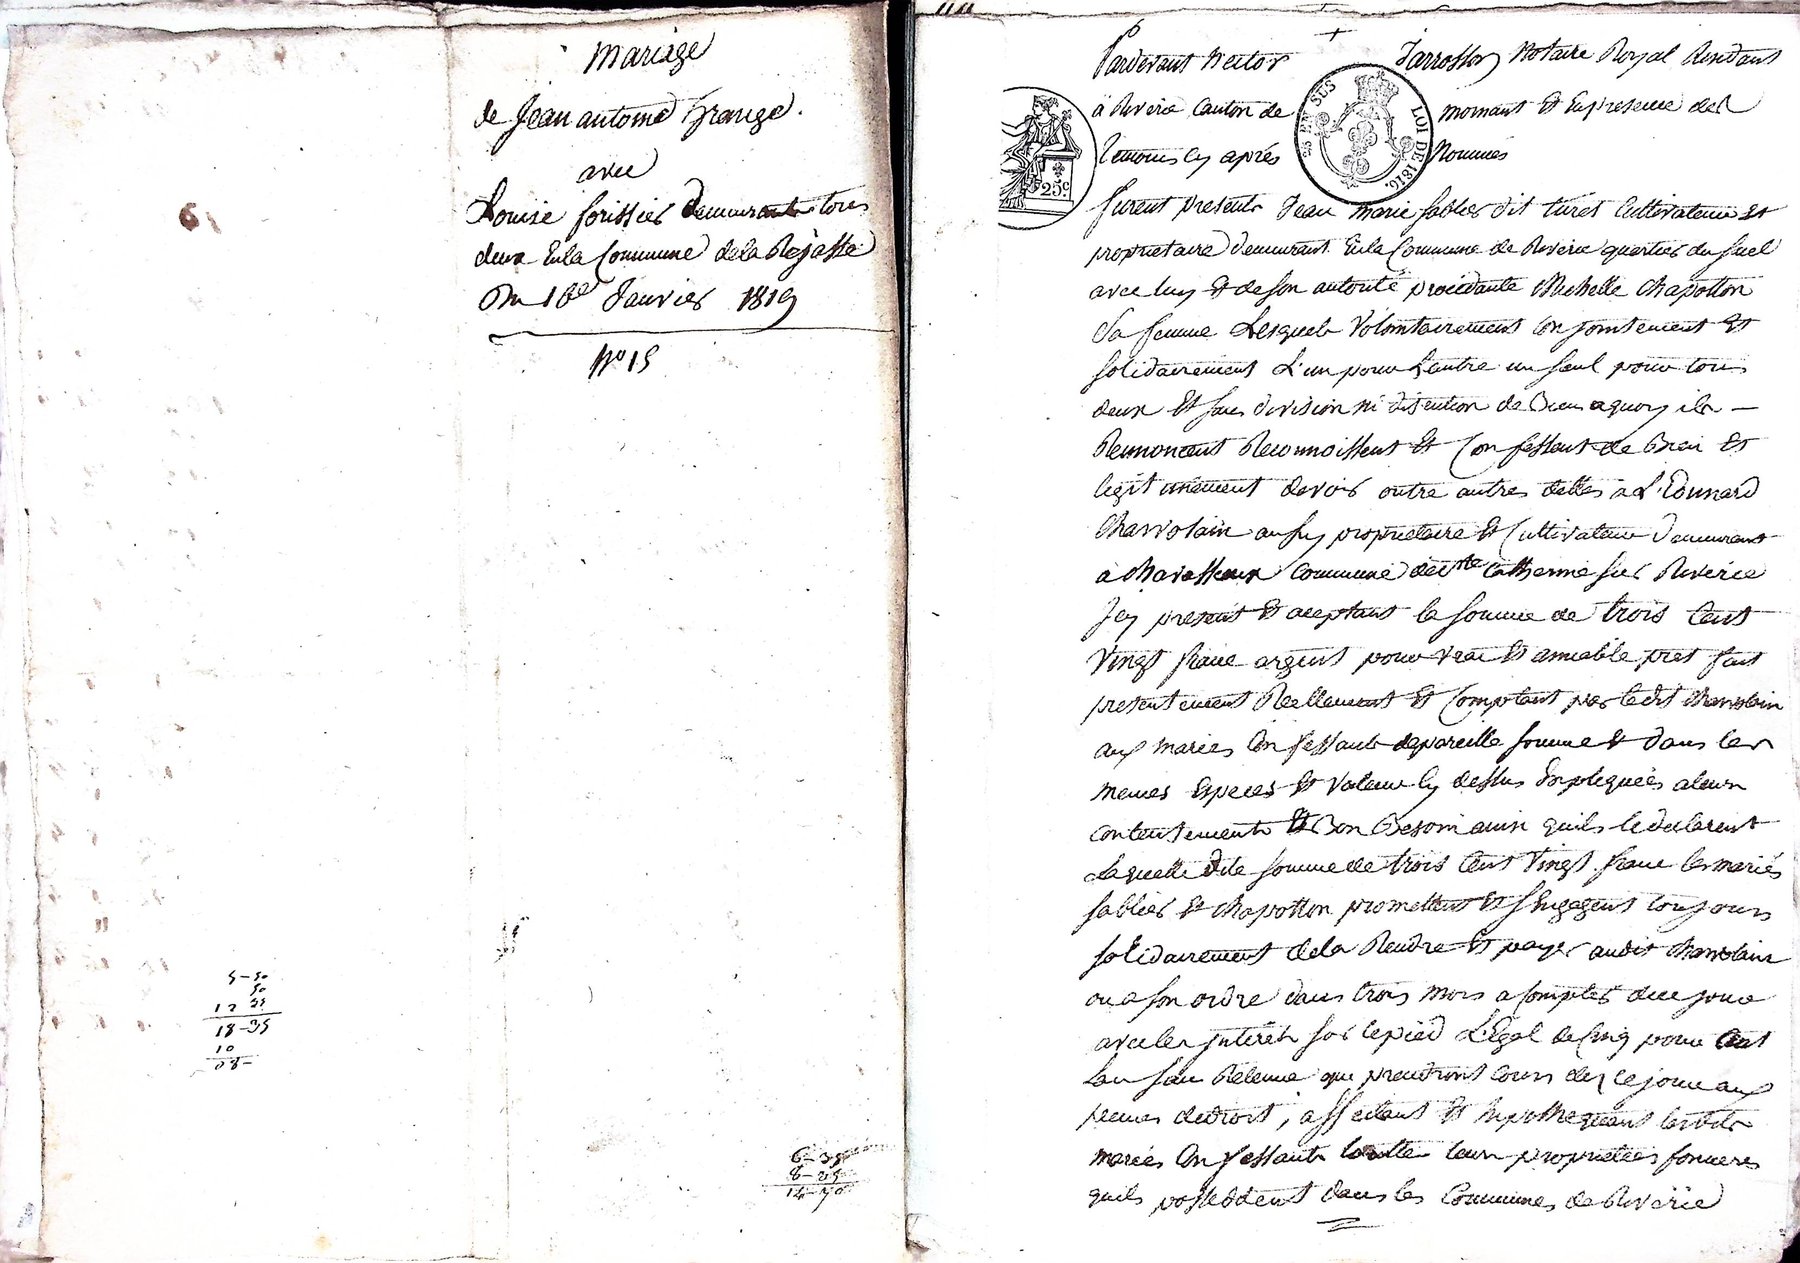 Mariage
de Jean antoine Grange.
avec
Louise forissier demeurants tous
deux En la Commune de la Rajasse
Du 16e Janvier 1819
No 15
5-50
50
12 35
18-35
10
08-
6-35
8-35
14-70
Pardevant Hector Jarrosson Notaire Royal Residant
à Riverie Canton de mornant Et En presence des
temoins cy après Nommés
25 EN SUS
LOI DE 1816.
25c.
furent presents Jean marie sablier dit turet Cultivateur Et
proprietaire demeurant En la Commune de Riverie quartier du fuel
avec luy Et de son autorité procédante Michelle Chapotton
Sa femme Lesquels Volontairement Conjointement Et
solidairement L'un pour L'autre un seul pour tous
deux Et sans division ni discution de Biens aquoy ils
Renoncent Reconnoissent Et Confessent de Bien Et
legitimement devoir outre autres dettes a L'Eonnard
Charvolain aussy proprietaire Et Cultivateur demeurant
à Chavasseux Commune de Ste Catherine sur Riverie
Icy present Et aceptant la somme de trois Cent
Vingt franc argent pour vrai Et amiable prêt fait
presentement Reellement Et Comptant par ledit Charvolain
aux mariés Confessants de pareille somme Et dans les
memes Especes Et Valeur Cy dessus Expliquées a leurs
contentements Et Bon Besoin ainsi quils le declarent
Laquelle dite somme de trois Cent Vingt franc les mariés
sablier Et Chapotton promettent Et s'Engagent toujours
solidairement de la Rendre Et payer audit Charvolain
ou a son ordre dans trois mois a Compter de ce jour
avec les Interêts sur le pied L'Egal de Cinq pour Cent
L'an sans Retenue qui prendront cours des ce jour aux
peines de droit, affectant Et hypothequant lesdits
mariés Confessants toutte leurs proprietées foncieres
quils possedent dans les Communes de Riverie